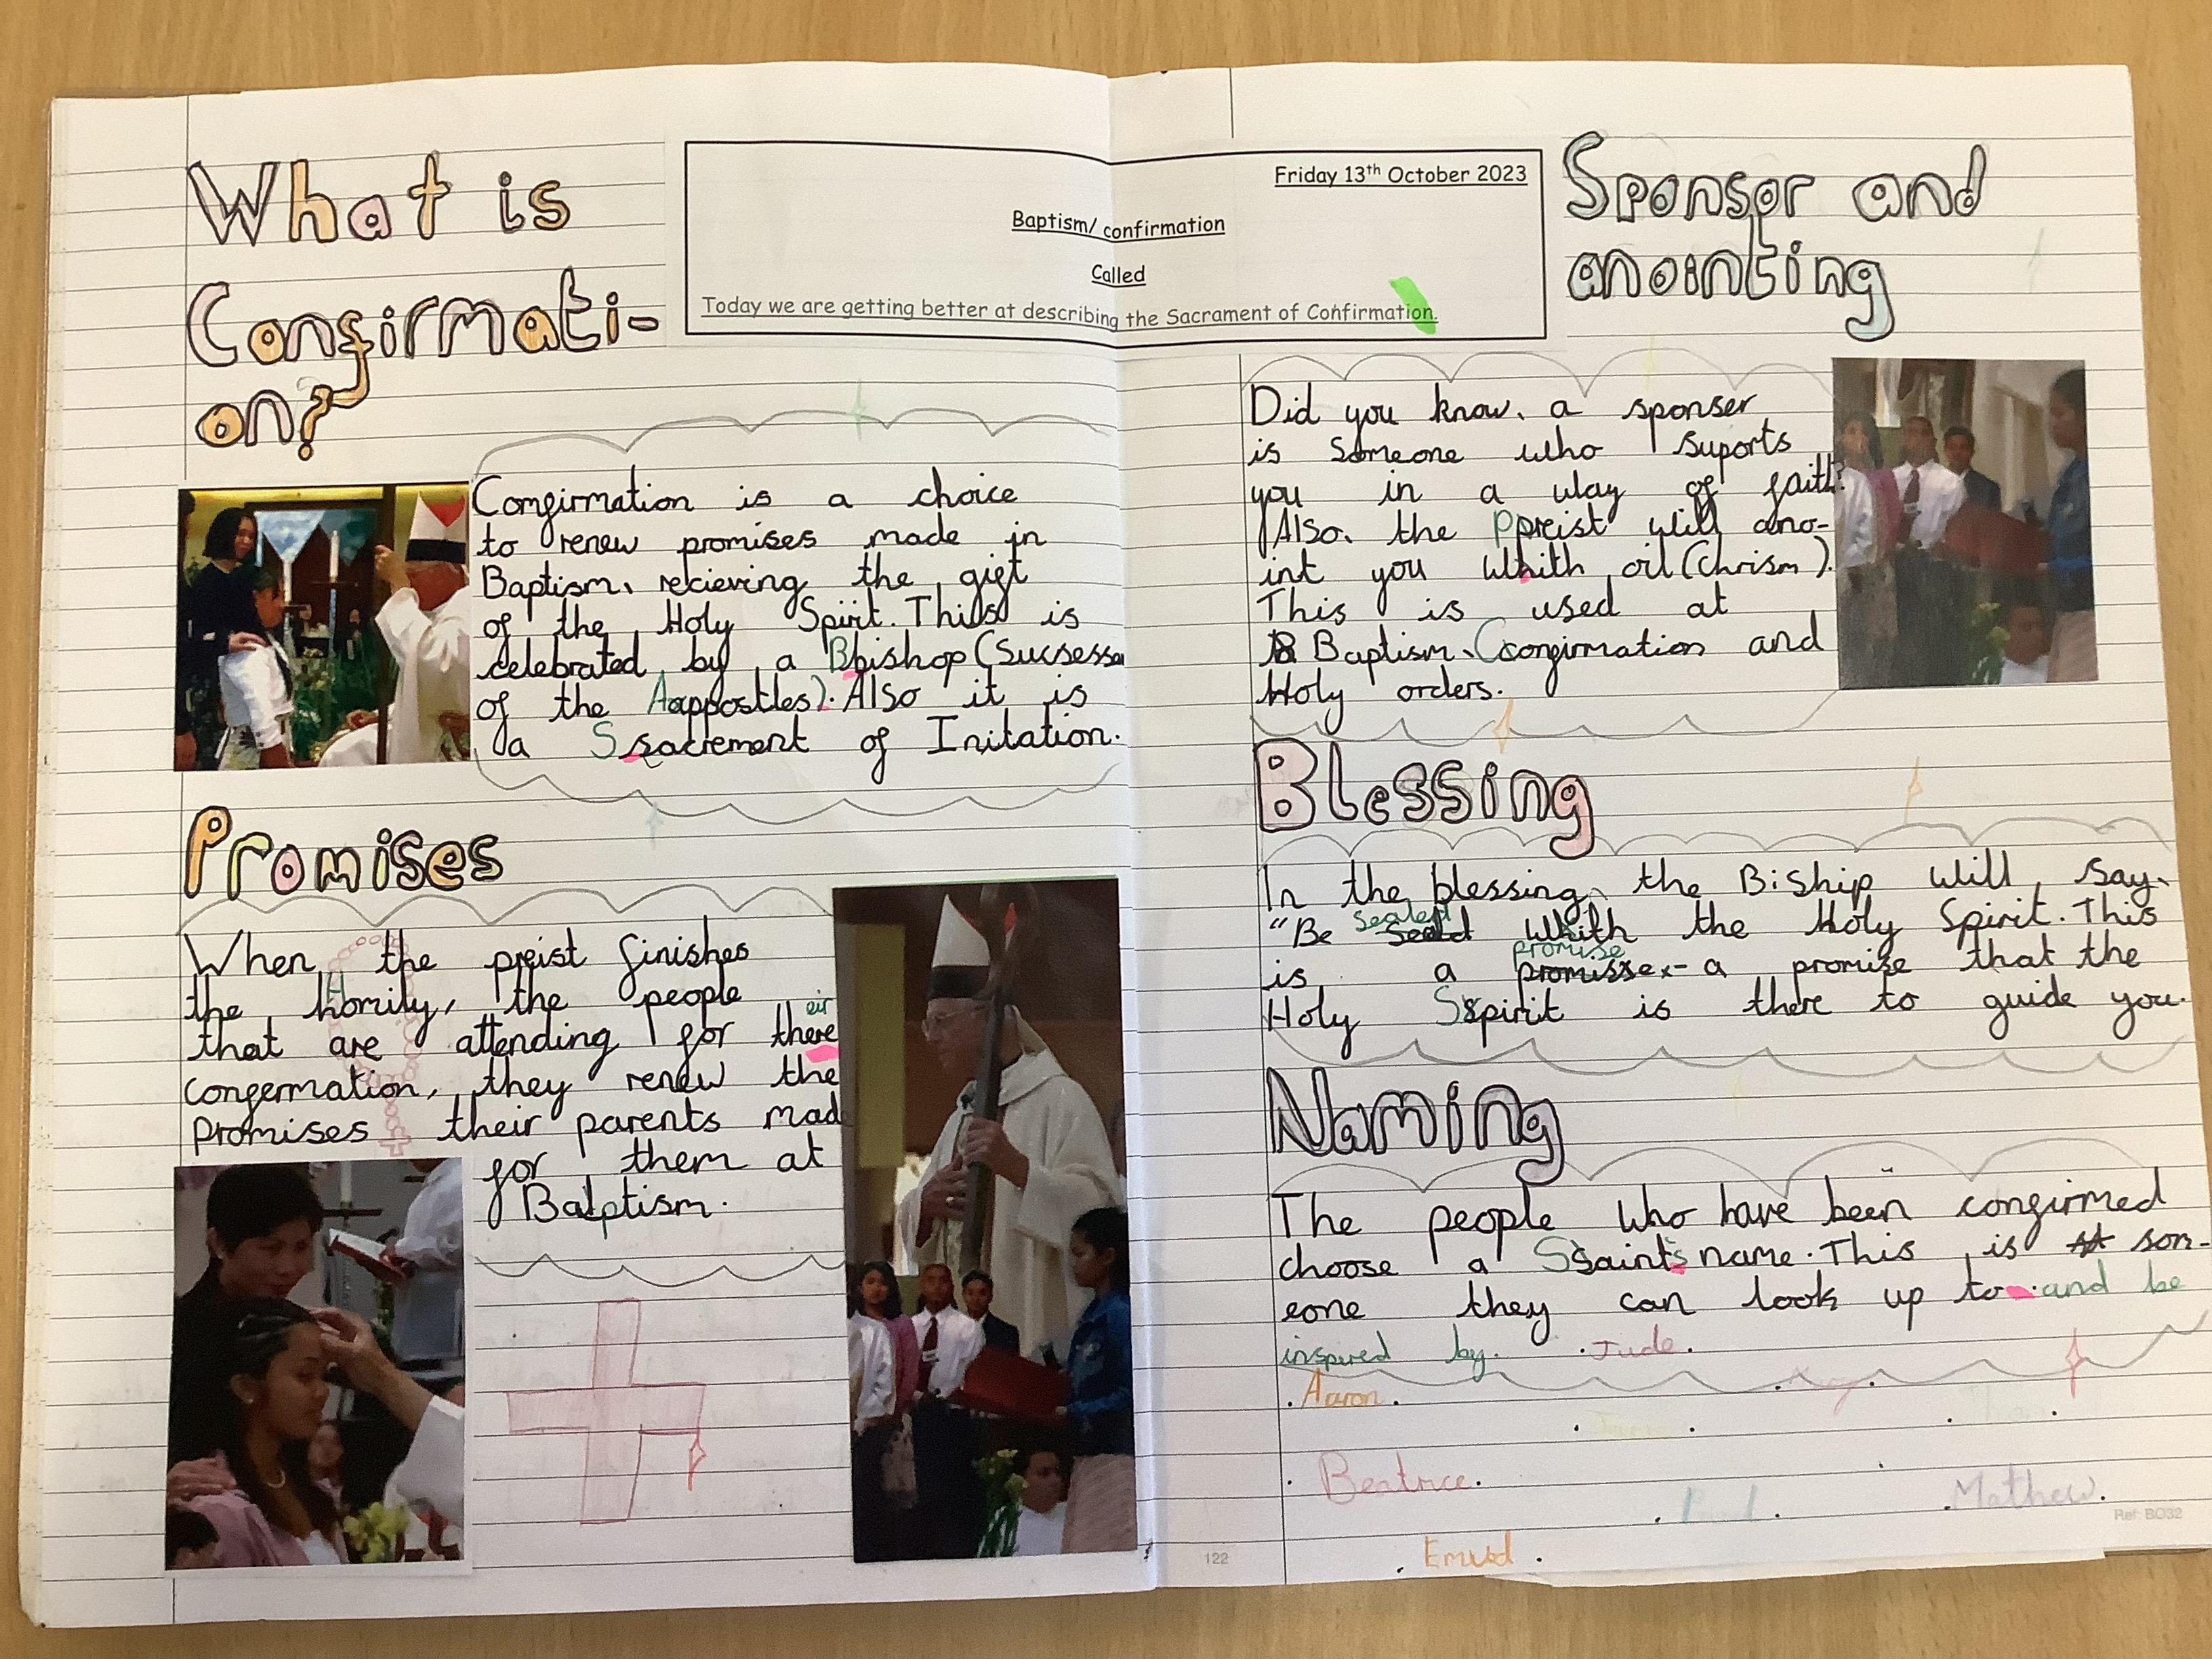 What is
Confirmati-
on?
Friday 13th October 2023
Baptism/ confirmation
Called
Today we are getting better at describing the Sacrament of Confirmation.
Confirmation is a choice
to renew promises made in
Baptism, recieving the gift
of the Holy Spirit. This is
celebrated by a Bbishop (Sucsesso
of the Aappostles). Also it is
a Ssacrement of Initation.
Promises
When the preist finishes
the Homily, the people
that are attending for there
eir
confermation, they renew the
Promises their parents made
for them at
Baptism.
Sponsor and
anointing
Did you know, a sponser
is someone who suports
you in a way of faith?
Also, the Ppreist will ano-
int you whith oil (Chrism).
This is used at
B Baptism, Cconfirmation and
Holy orders.
Blessing
In the blessing, the Biship will say,
sealed
"Be seald whith the Holy Spirit. This
promise
is a promisse - a promise that the
Holy Sspirit is there to guide you.
Naming
The people who have been confirmed
choose a Ssaint's name. This is st som-
eone they can look up to. and be
inspired by. Jude.
Aaron.
Beatrice.
Paul
Mathew.
Ref: BO32
122